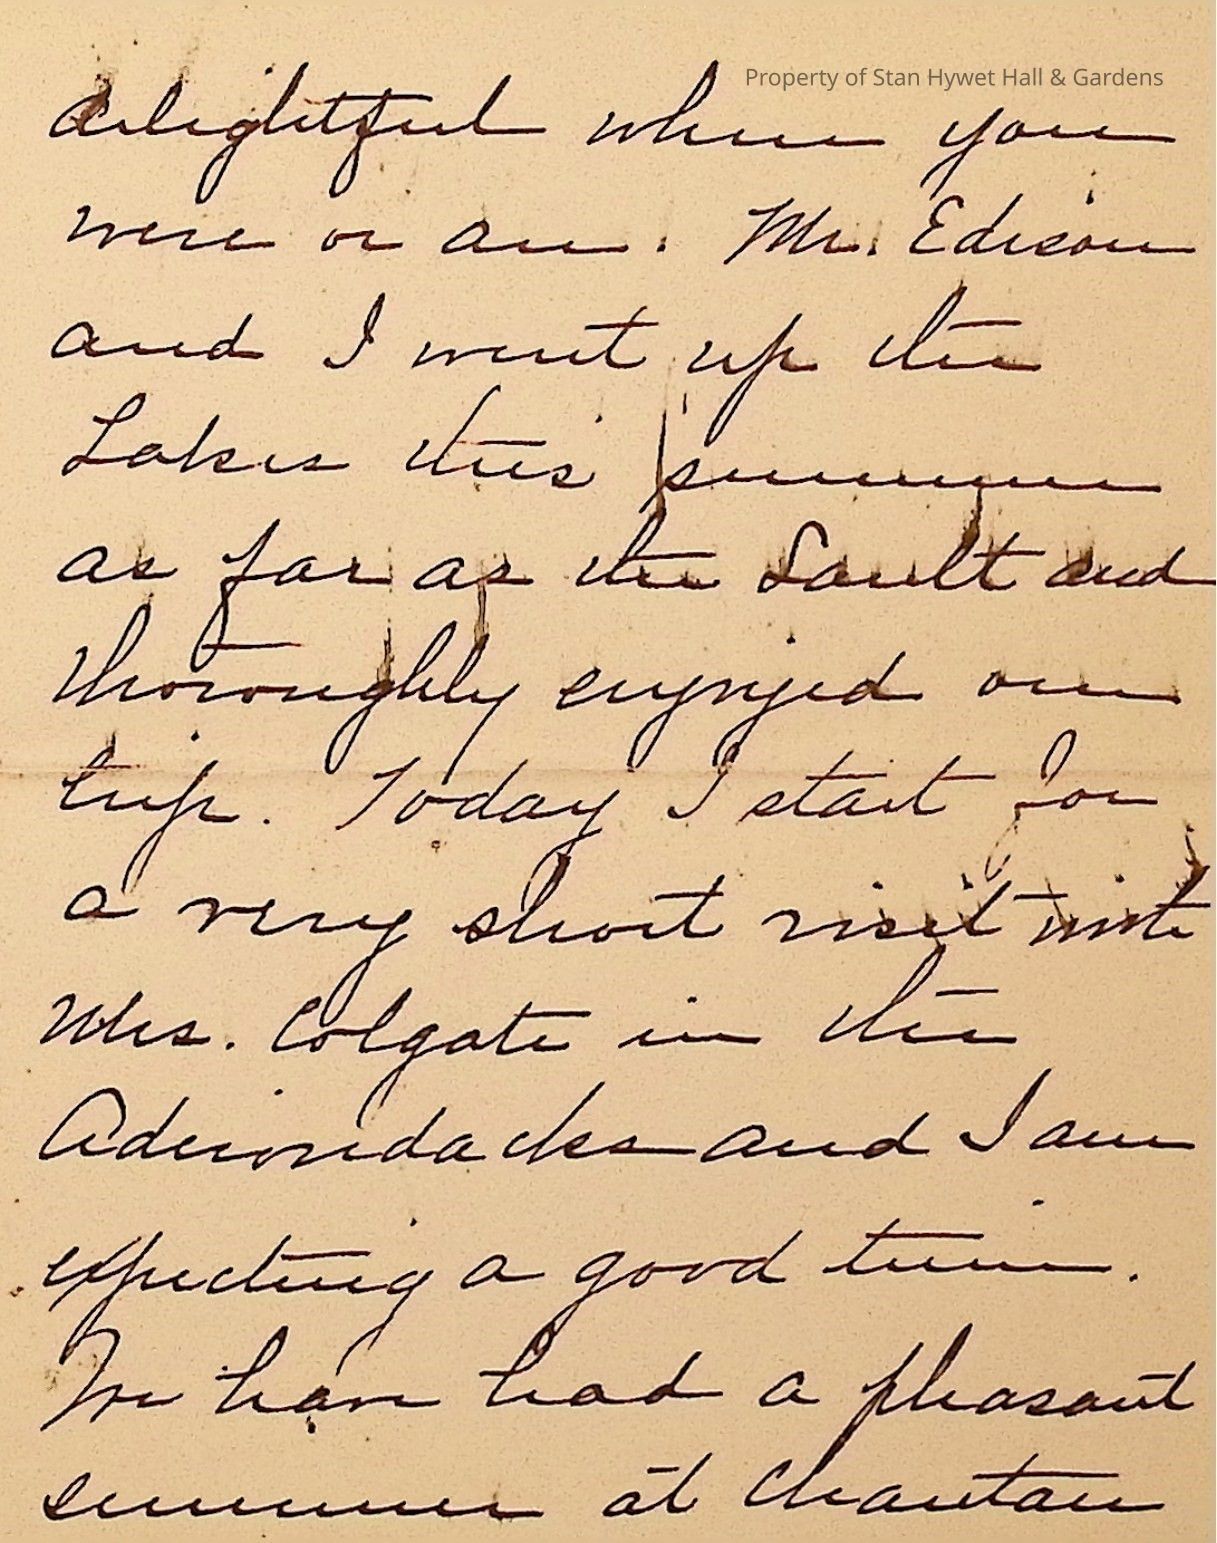 Property of Stan Hywet Hall & Gardens
delightful where you
were or are. Mr. Edison
and I went up the
Lakes this summer
as far as the Sault and
thoroughly enjoyed our
trip. Today I start for
a very short visit with
Mrs. Colgate in the
Adirondacks and I am
expecting a good time.
We have had a pleasant
summer at Chautau